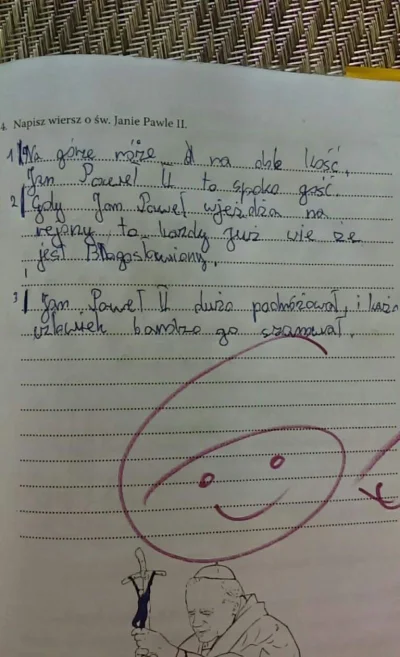 4. Napisz wiersz o św. Janie Pawle II.
1 Na górze róże a na dole kość,
Jan Paweł II to spoko gość.
2 Gdy Jan Paweł wjeżdża na
rejony to każdy już wie że
jest Błogosławiony.
3 Jan Paweł II dużo podróżował, i każd
człowiek bardzo go szanował.